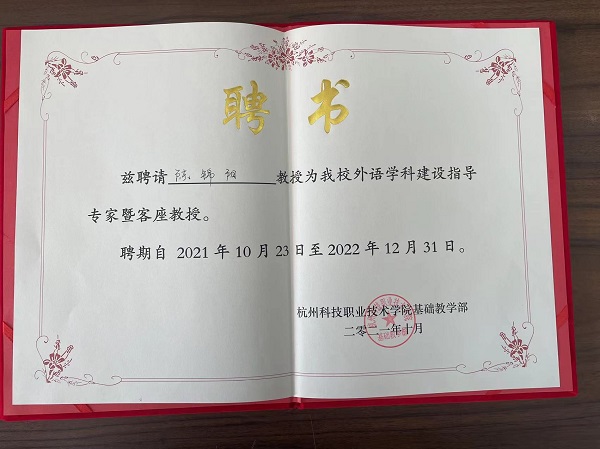 聘书
兹聘请 陈 教授为我校外语学科建设指导
专家暨客座教授。
聘期自 2021 年 10 月 23 日至 2022 年 12 月 31 日。
杭州科技职业技术学院基础教学部
二零二一年十月
基础教学部